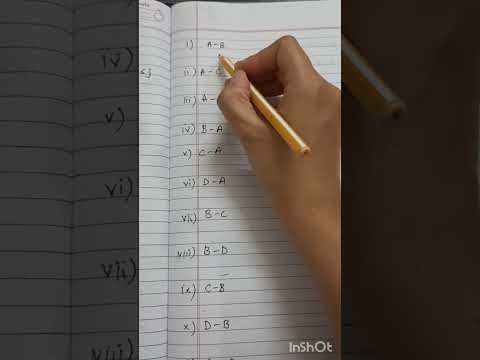 i) A-B
ii) A-C
iii) A-
iv) B-A
v) C-A
vi) D-A
vii) B-C
viii) B-D
ix) C-B
x) D-B
iv)
v)
vi)
vii)
InShOt